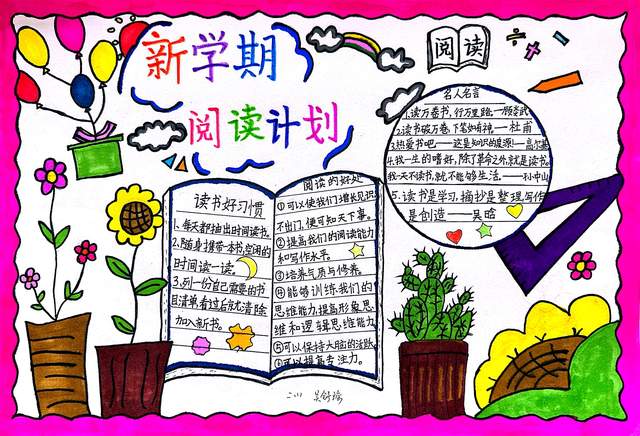 新学期
阅读计划
阅读
名人名言
1.读万卷书,行万里路。——顾炎武
2.读书破万卷,下笔如有神。——杜甫
3.热爱书吧——这是知识的源泉!——高尔基
4.我一生的嗜好,除了革命之外,就是读书。
我一天不读书,就不能够生活。——孙中山
5.读书是学习,摘抄是整理,写作
是创造——吴晗
读书好习惯
1、每天都抽出时间读书。
2.随身携带一本书,空闲的
时间读一读。
3.列一份自己需要的书
目清单看过后就清除
加入新书。
阅读的好处
①可以使我们增长见识
不出门,便可知天下事。
②提高我们的阅读能力
和写作水平。
③培养气质与修养。
④能够训练我们的
思维能力,提高形象思
维和逻辑思维能力
⑤可以保持大脑的活跃
⑥可以提高专注力。